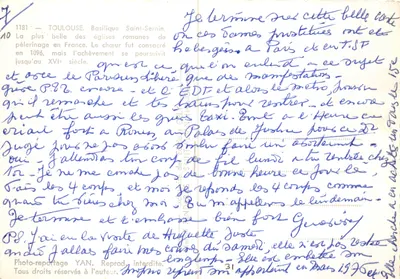 7/10
1181 - TOULOUSE. Basilique Saint-Sernin.
La plus belle des églises romanes de
pèlerinage en France. Le chœur fut consacré
en 1096, mais l'achèvement se poursuivit
jusqu'au XVIe siècle.
Je termine sur cette belle carte
où ces dames prostituées ont été
hébergées à Paris de en
qu'est ce que l'on entend à ce sujet
et avec le Parisien libéré que de manifestations
grève P et T encore - et l'EDF et alors le métro pourvu
qu'il remarche et tes trains pour rentrer - et encore
peut être aussi les grèves taxi. Émet à l'heure on
criait fort à Rennes au Palais de Justice pour ce
Juge pour ne pas avoir voulu faire un avortement -
oui - J'attendrai ton coup de fil lundi à ta rentrée chez
toi - Je ne me couche pas de bonne heure ce jour là.
Fais les 4 coups, et moi je réponds les 4 coups comme
quand tu viens chez moi - Ou m'appelles le lendemain.
Je termine et t'embrasse bien fort
PS. J'ai eu la visite de Huguette juste
quand j'allais faire mes courses du samedi, elle n'est pas restée
longtemps - Elle est
son appartement en mars 1975
Photo-reportage YAN. Reprod. interdite.
Tous droits réservés à l'auteur.
31